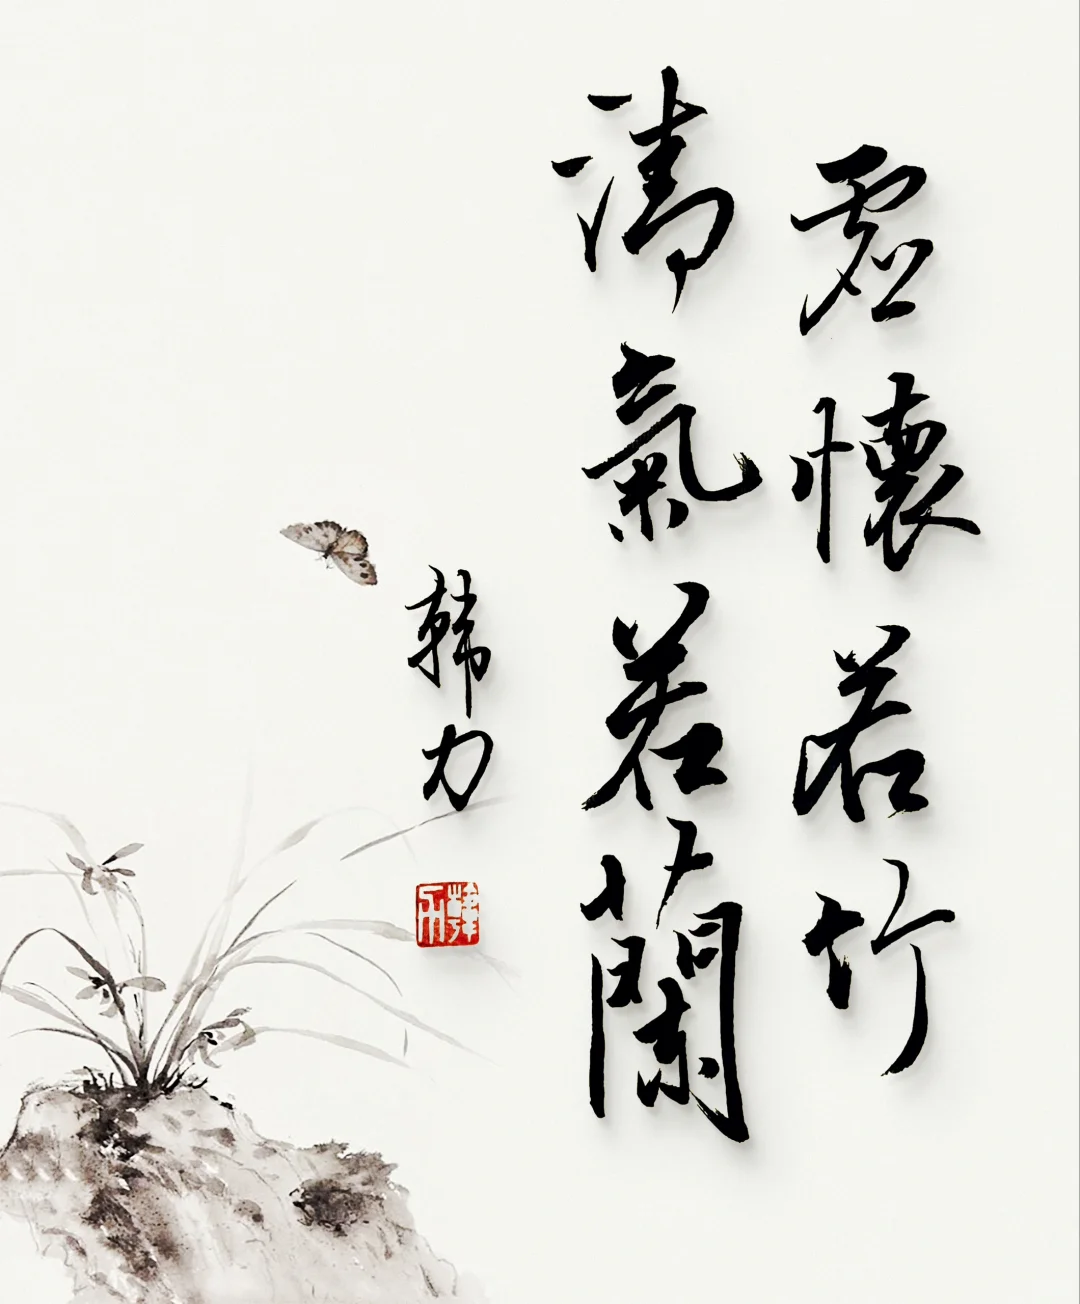 虚懷若竹
清氣若蘭
韩力